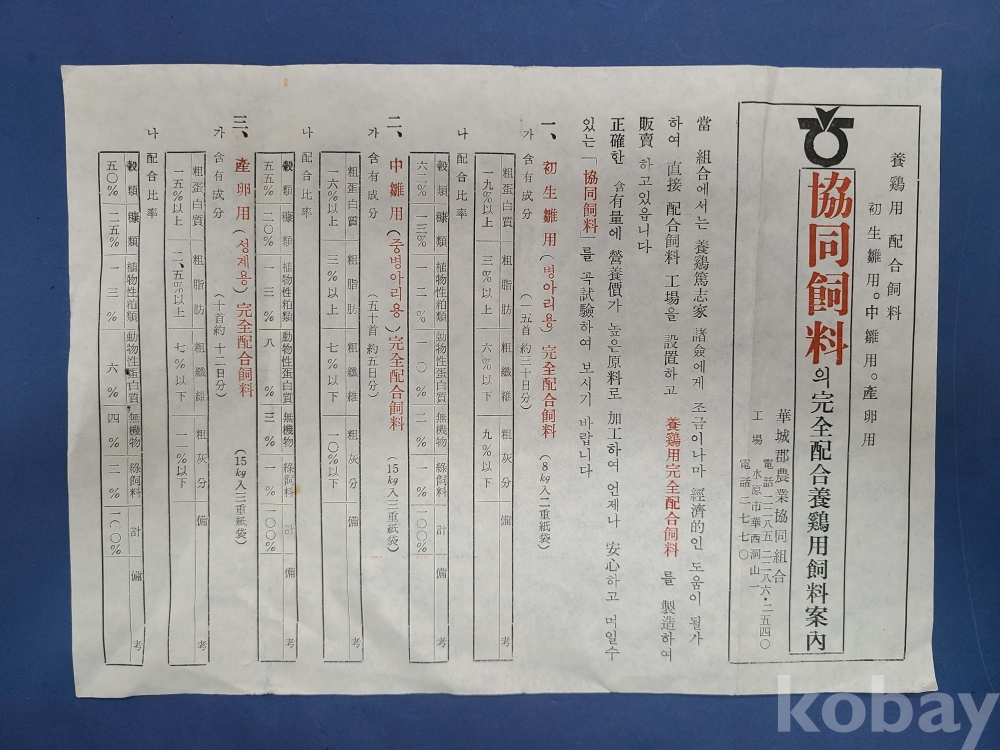 養鷄用 配合飼料
初生雛用。中雛用。產卵用
協同飼料의完全配合養鷄用飼料案內
華城郡農業協同組合
電話 二二八五 二二八六・二五四〇
工場 水原市華西洞山一
電話 二七七〇
當 組合에서는 養鷄篤志家 諸僉에게 조금이나마 經濟的인 도움이 될가
하여 直接 配合飼料 工場을 設置하고 養鷄用完全配合飼料 를 製造하여
販賣 하고있읍니다
正確한 含有量에 營養價가 높은原料로 加工하여 언제나 安心하고 머일수
있는 「協同飼料」를 꼭試驗하여 보시기 바랍니다
一、 初生雛用(병아리용) 完全配合飼料 (8kg入二重紙袋)
가 含有成分 (一五首約三十日分)
粗蛋白質 粗脂肪 粗纖維 粗灰分 備考
一九%以上 三%以上 六%以下 九%以下
나 配合比率
穀類 糠類 植物性粕類 動物性蛋白質 無機物 綠飼料 計 備考
六二% 一三% 一二% 一〇% 二% 一% 一〇〇%
二、 中雛用(중병아리용) 完全配合飼料 (15kg入三重紙袋)
가 含有成分 (五十首約五日分)
粗蛋白質 粗脂肪 粗纖維 粗灰分 備考
一六%以上 三%以上 七%以下 一〇%以下
나 配合比率
穀類 糠類 植物性粕類 動物性蛋白質 無機物 綠飼料 計 備考
五五% 二〇% 一三% 八% 三% 一% 一〇〇%
三、 產卵用(성계용) 完全配合飼料 (15kg入三重紙袋)
가 含有成分 (十首約十二日分)
粗蛋白質 粗脂肪 粗纖維 粗灰分 備考
一五%以上 二、五%以上 七%以下 一一%以下
나 配合比率
穀類 糠類 植物性粕類 動物性蛋白質 無機物 綠飼料 計 備考
五〇% 二五% 一三% 六% 四% 二% 一〇〇%
kobay